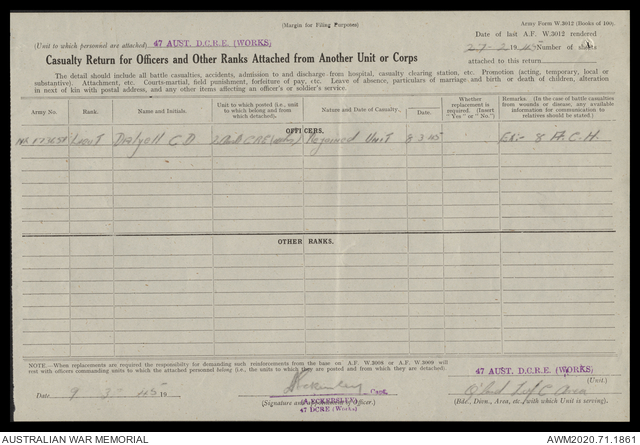 (Margin for Filing Purposes)
Army Form W.3012 (Books of 100).
(Unit to which personnel are attached) 47 AUST. D.C.R.E. (WORKS)
Date of last A.F. W.3012 rendered
27-2 1945 Number of sheets
attached to this return
Casualty Return for Officers and Other Ranks Attached from Another Unit or Corps
The detail should include all battle casualties, accidents, admission to and discharge from hospital, casualty clearing station, etc. Promotion (acting, temporary, local or
substantive). Attachment, etc. Courts-martial, field punishment, forfeiture of pay, etc. Leave of absence, particulars of marriage and birth or death of children, alteration
in next of kin with postal address, and any other items affecting an officer's or soldier's service.
Army No.
Rank.
Name and Initials.
Unit to which posted (i.e., unit to which belong and from which detached).
Nature and Date of Casualty.
Date.
Whether replacement is required. (Insert "Yes" or "No.")
Remarks. (In the case of battle casualties from wounds or disease, any available information for communication to relatives should be stated.)
OFFICERS.
Lieut C D Rejoined Unit 8 3 45 Ex- 8 A.C.H
OTHER RANKS.
NOTE.—When replacements are required the responsibility for demanding such reinforcements from the base on A.F. W.3008 or A.F. W.3009 will
rest with officers commanding units to which the attached personnel belong (i.e., the units to which they are posted and from which they are detached).
Date 9 3 45 19
Eckersley Capt.
(A. ECKERSLEY)
(Signature and Appointment of Officer.)
47 DCRE (Works)
47 AUST. D.C.R.E. (WORKS)
(Unit.)
Q'land L of C Area
(Bde., Divn., Area, etc., with which Unit is serving).
AUSTRALIAN WAR MEMORIAL
AWM2020.71.1861